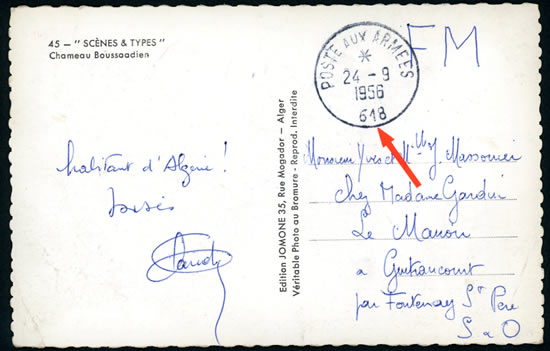 45 — " SCÈNES & TYPES "
Chameau Boussaadien
habitant d'Algérie !
Edition JOMONE 35, Rue Mogador — Alger
Véritable Photo au Bromure - Reprod. Interdite
POSTE AUX ARMEES
*
24 - 9
1956
618
FM
Monsieur Yves et Mlle J.
chez Madame
Le
a Guitrancourt
par Fontenay St Père
S & O